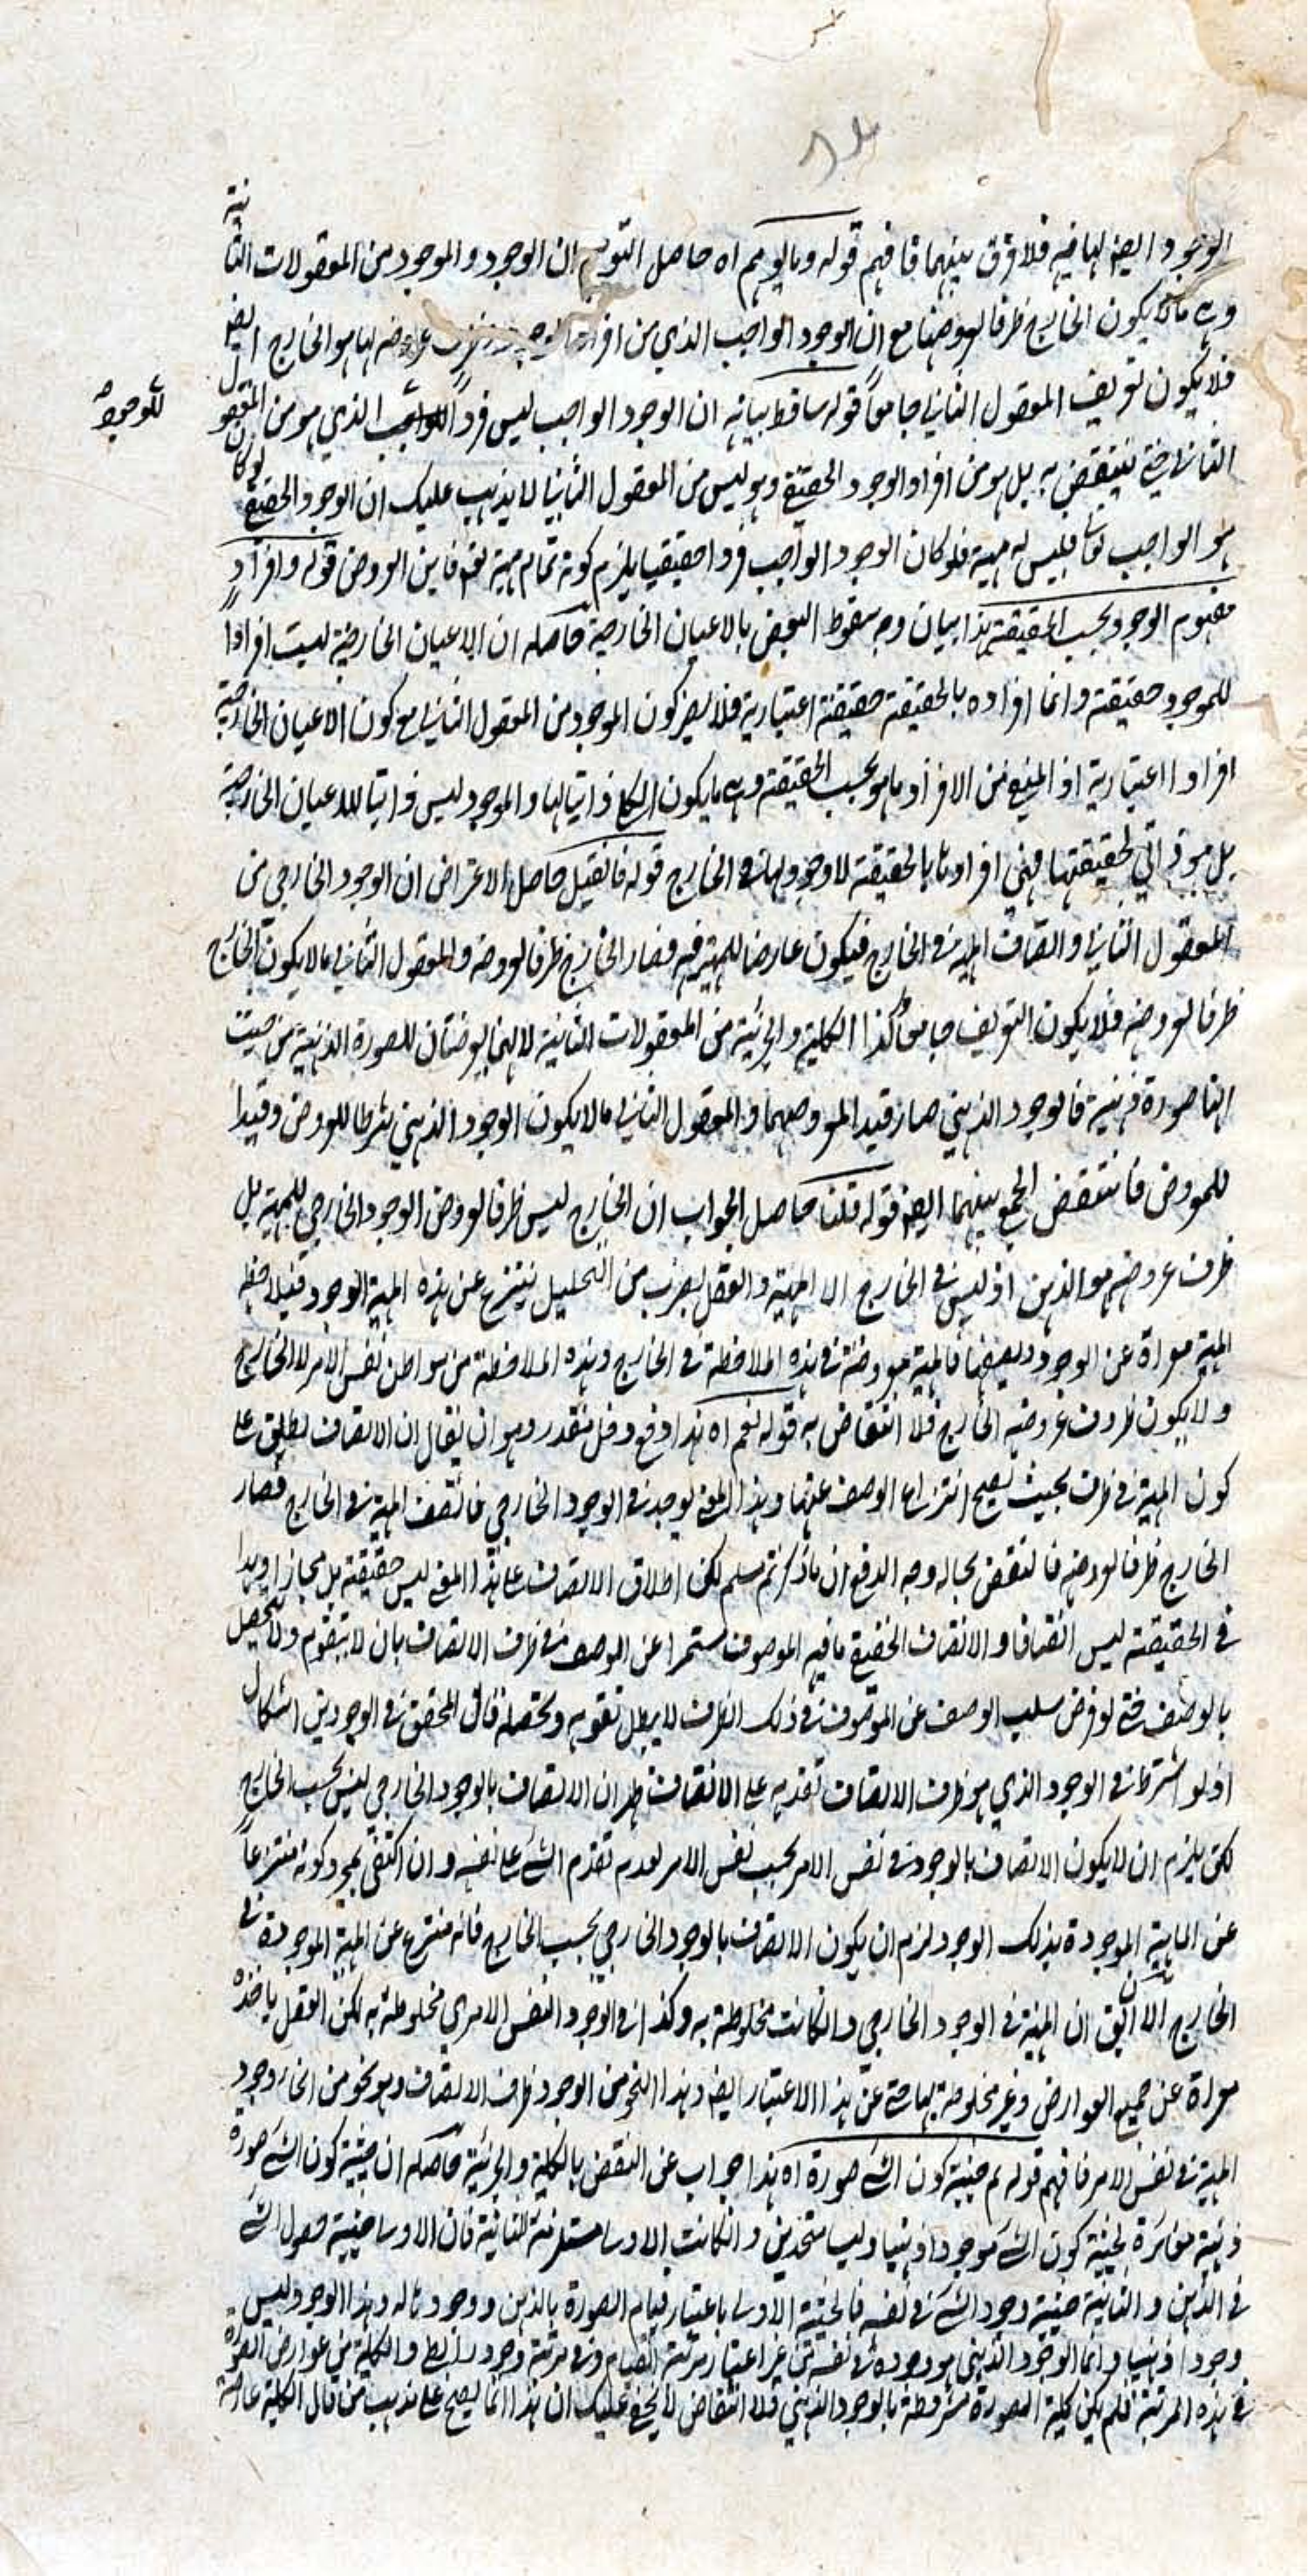 الوجود ايضا لها فيه فلا فرق بينهما فافهم قوله وما يوهم اه حاصل التوهم ان الوجود والموجود من المعقولات الثانية
وهي ما لا يكون الخارج ظرفا لعروضها مع ان الوجود الواجب الذي من افراد عروضه لها هو الخارج ايضا
فلا يكون تعريف المعقول الثاني جامعا قوله ساقط بيانه ان الوجود الواجب ليس فردا للوجود الذي هو من المعقول
للوجود صح
الثاني حتى ينتقض به بل هو من افراد الوجود الحقيقي وهو ليس من المعقول الثاني لا يذهب عليك ان الوجود الحقيقي لو كان
هو الواجب تعالى فليس له مهية فلو كان الوجود الواجب فردا حقيقيا يلزم كونه تمام مهية نعم فاين العروض قوله وافراد
مفهوم الوجود بحسب الحقيقة هذا بيان وجه سقوط النقض بالاعيان الخارجية حاصله ان الاعيان الخارجية ليست افرادا
للموجود حقيقة وانما افراده بالحقيقة حقيقة اعتبارية فلا يضر كون الموجود من المعقول الثاني مع كون الاعيان الخارجية
افرادا اعتبارية اذ المعنى من الافراد ما هو بحسب الحقيقة وهي ما يكون الكلي ذاتيا لها والموجود ليس ذاتيا للاعيان الخارجية
بل هو ذاتي لحقيقتها فهي افرادها بالحقيقة لا وجود لها في الخارج قوله فان قيل حاصل الاعتراض ان الوجود الخارجي من
المعقول الثاني واتصاف المهية في الخارج فيكون عارضا للمهية فيه فصار الخارج ظرفا لعروضه والمعقول الثاني ما لا يكون الخارج
ظرفا لعروضه فلا يكون التعريف جامعا وكذا الكلية والجزئية من المعقولات الثانية لانهما يعرضان للصورة الذهنية من حيث
انها صورة ذهنية فالوجود الذهني صار قيدا لمعروضهما والمعقول الثاني ما لا يكون الوجود الذهني شرطا للعروض وقيدا
للمعروض فانتقض الجمع بينهما ايضا قوله قلنا حاصل الجواب ان الخارج ليس ظرفا لعروض الوجود الخارجي للمهية بل
ظرف عروضه هو الذهن اذ ليس في الخارج الا المهية والعقل بضرب من التحليل ينتزع عن هذه المهية الوجود فيلاحظ
المهية معراة عن الوجود ويصفها فالمهية معروضة في هذه الملاحظة في الخارج وهذه الملاحظة من مواطن نفس الامر لا الخارج
ولا يكون ظرف عروضه الخارج فلا انتقاض به قوله نعم اه هذا دفع دخل مقدر وهو ان يقال ان الاتصاف يطلق على
كون المهية في ظرف بحيث يصح انتزاع الوصف عنها وهذا المعنى يوجد في الوجود الخارجي فاتصف المهية في الخارج فصار
الخارج ظرفا لعروضه فالنقض بحاله وجه الدفع ان ما ذكرتم مسلم لكن اطلاق الاتصاف على هذا المعنى ليس حقيقة بل مجازا وهذا
في الحقيقة ليس اتصافا والاتصاف الحقيقي ما فيه الموصوف مستمرا عن الوصف في ظرف الاتصاف بان لا يتقوم ولا يتحصل
بالوصف حتى لو فرض سلب الوصف عن الموصوف في ذلك الظرف لا يبطل تقومه وتحصله قال المحقق في الوجودين اشكال
اذ لو اشترط في الوجود الذي هو ظرف الاتصاف تقدمه على الاتصاف ظهر ان الاتصاف بالوجود الخارجي ليس بحسب الخارج
لكن يلزم ان لا يكون الاتصاف بالوجود في نفس الامر بحسب نفس الامر لعدم تقدم الشئ على نفسه وان اكتفى بمجرد كونه منتزعا
عن الماهية الموجودة بذلك الوجود لزم ان يكون الاتصاف بالوجود الخارجي بحسب الخارج فانه منتزع عن المهية الموجودة في
الخارج الا ان يق ان المهية في الوجود الخارجي وان كانت مخلوطة به وكذا في الوجود النفس الامري مخلوطة به لكن العقل ياخذه
معراة عن جميع العوارض وغير مخلوطة بها حتى عن هذا الاعتبار ايضا وهذا النحو من الوجود ظرف الاتصاف وهو نحو من انحاء وجود
المهية في نفس الامر فافهم قوله ثم حيثية كون الشئ صورة اه هذا جواب عن النقض بالكلية والجزئية حاصله ان حيثية كون الشئ صورة
ذهنية مغايرة لحيثية كون الشئ موجودا ذهنيا وليسا متحدين وان كانت الاولى مستلزمة للثانية فان الاولى حيثية حصول الشئ
في الذهن والثانية حيثية وجود الشئ في نفسه فالحيثية الاولى باعتبار قيام الصورة بالذهن ووجودها له وهذا الوجود ليس
وجودا ذهنيا وانما الوجود الذهني هو وجوده في نفسه من غير اعتبار مرتبة القيام وفي مرتبة وجود رابطي والكلية من عوارض الصورة
في هذه المرتبة فلم يكن كلية الصورة مشروطة بالوجود الذهني فلا انتقاض لا يخفى عليك ان هذا انما يصح على مذهب من قال الكلية عارضة